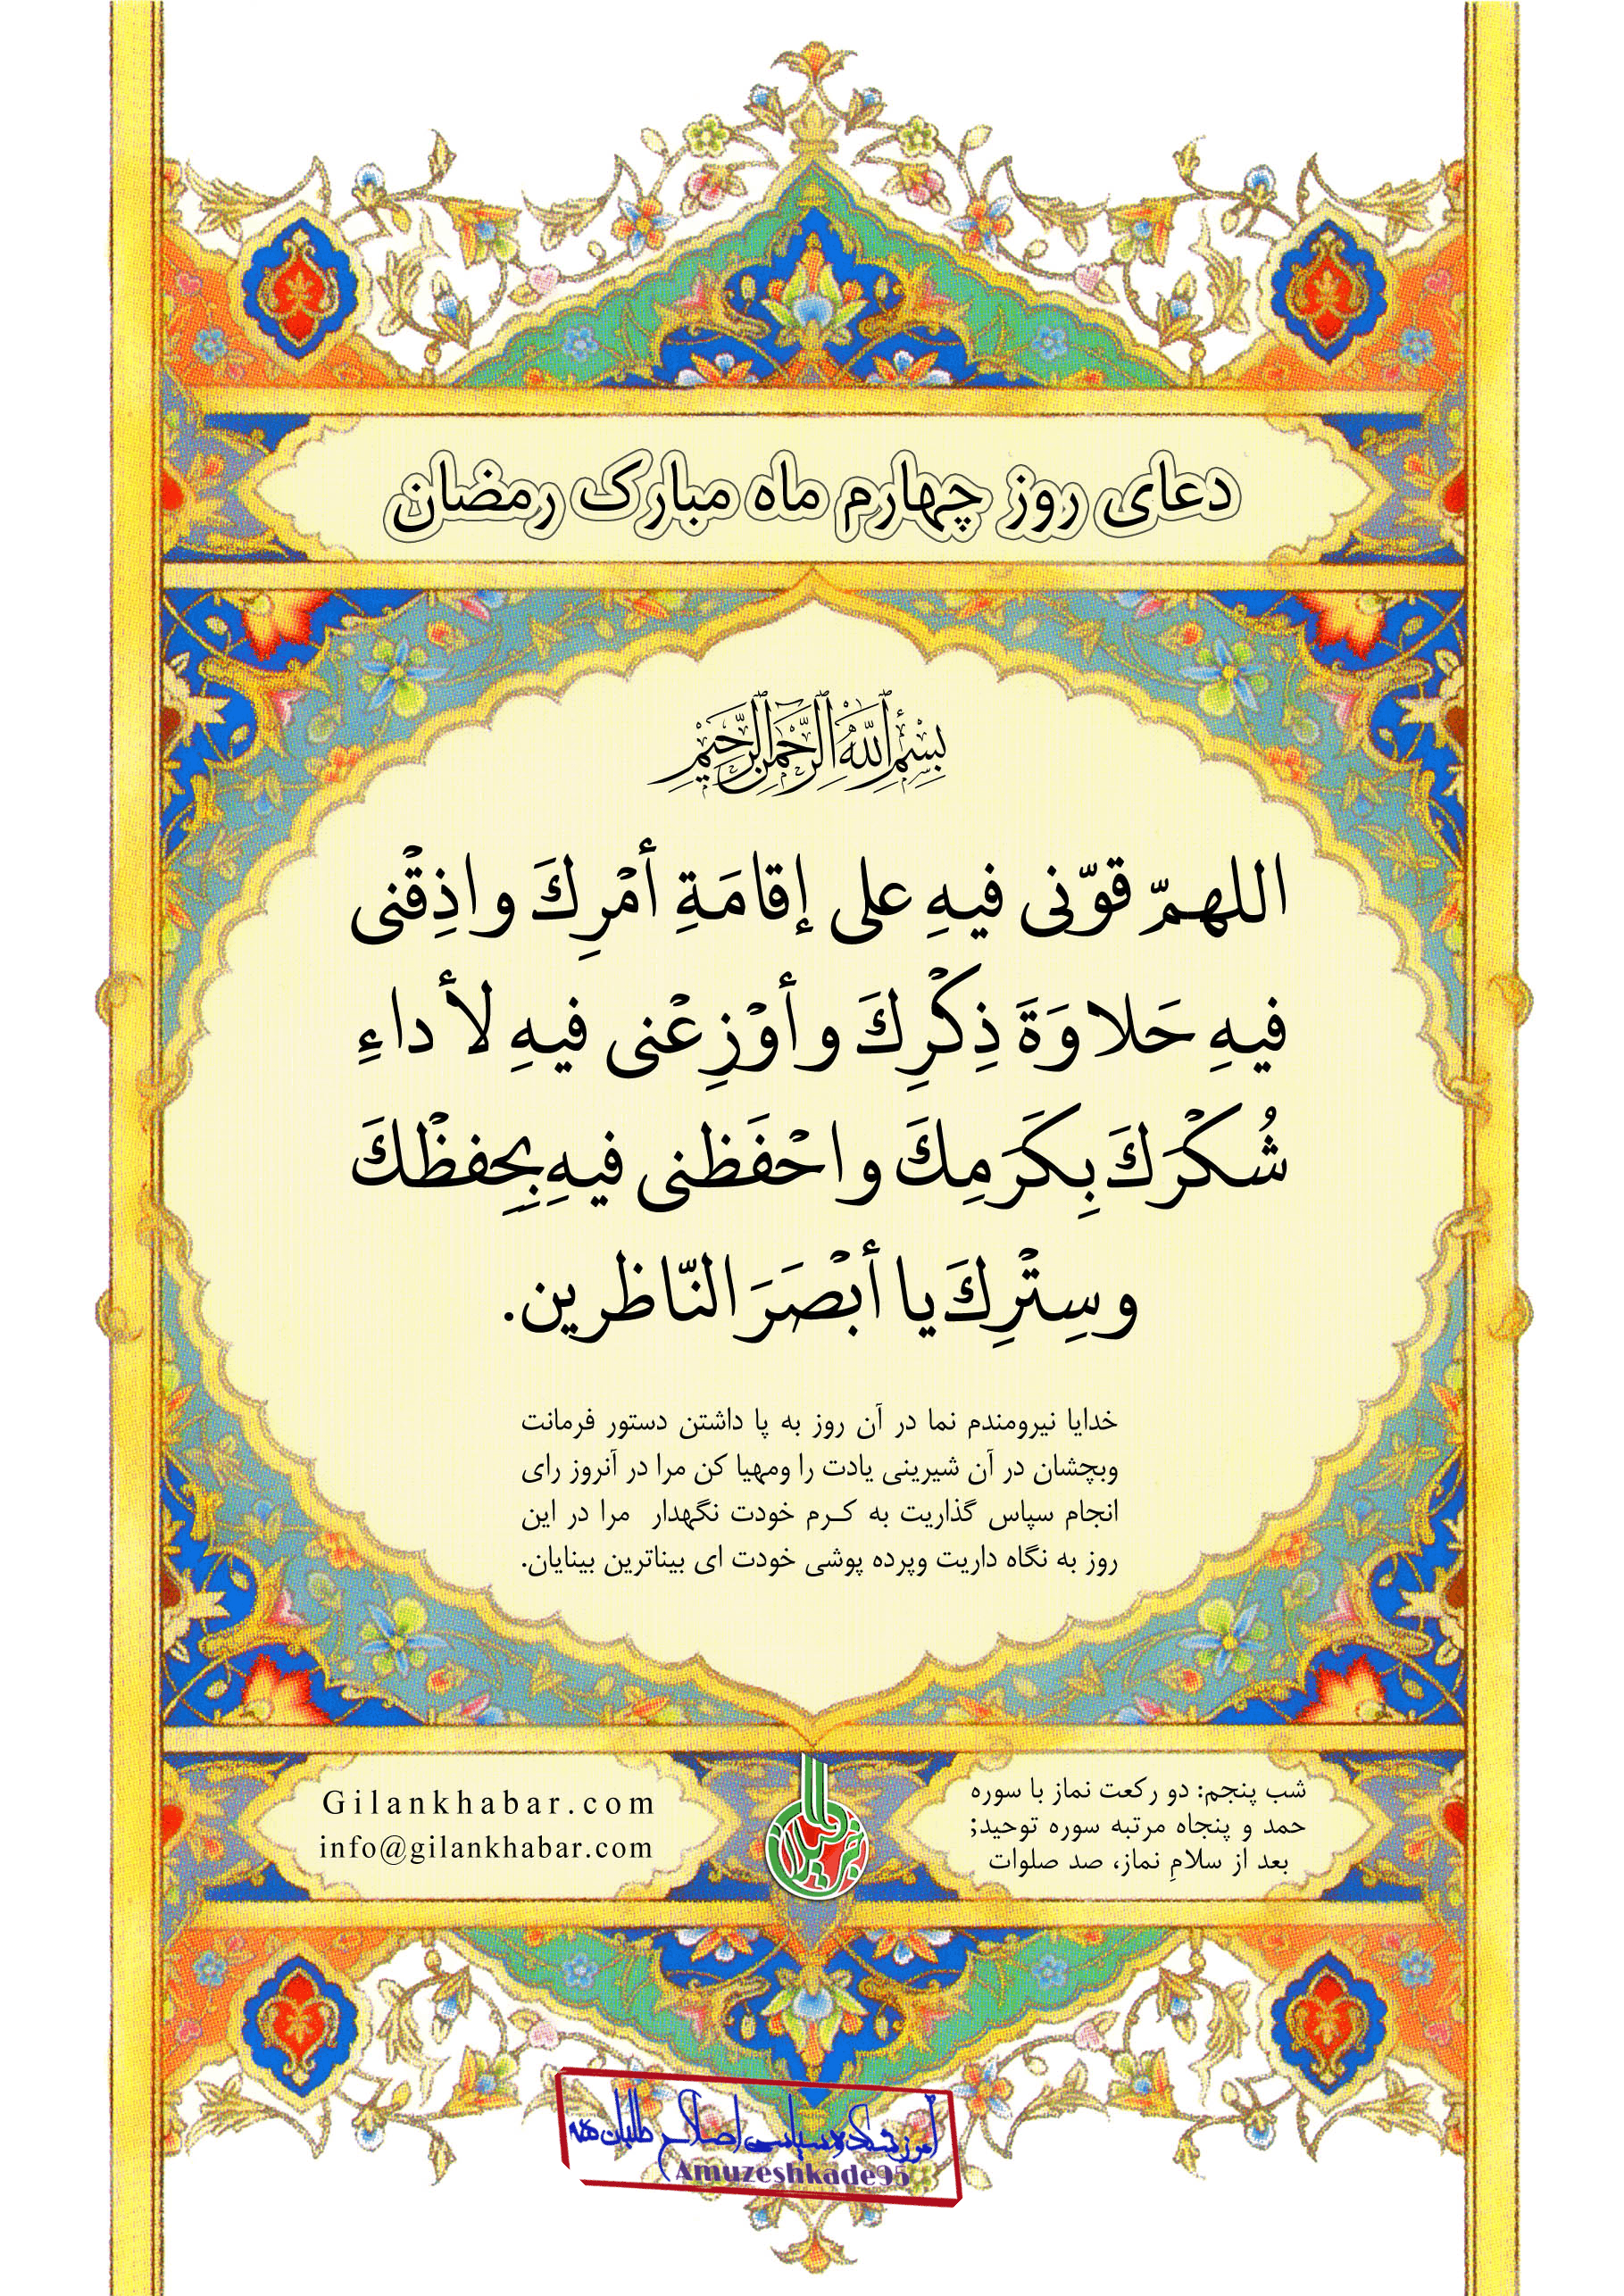 دعای روز چهارم ماه مبارک رمضان
بِسْمِ اللَّهِ الرَّحْمَنِ الرَّحِيمِ
اللهمّ قوّنی فيهِ علی إقامَةِ أمْرِكَ واذِقْنی
فيهِ حَلاوَةَ ذِكْرِكَ وأوْزِعْنی فيهِ لأداءِ
شُكْرَكَ بِكَرَمِكَ واحْفَظنی فيهِ بِحِفظْكَ
وسِتْرِكَ يا أبْصَرَ النّاظرين.
خدایا نیرومندم نما در آن روز به پا داشتن دستور فرمانت
وبچشان در آن شیرینی یادت را ومهیا کن مرا در آنروز رای
انجام سپاس گذاریت به کـرم خودت نگهدار مرا در این
روز به نگاه داریت وپرده پوشی خودت ای بیناترین بینایان.
شب پنجم: دو رکعت نماز با سوره
حمد و پنجاه مرتبه سوره توحید;
بعد از سلامِ نماز، صد صلوات
Gilankhabar.com
info@gilankhabar.com
خبر گیلان
آموزشکده سیاسی اصلاح طلبان
Amuzeshkade95